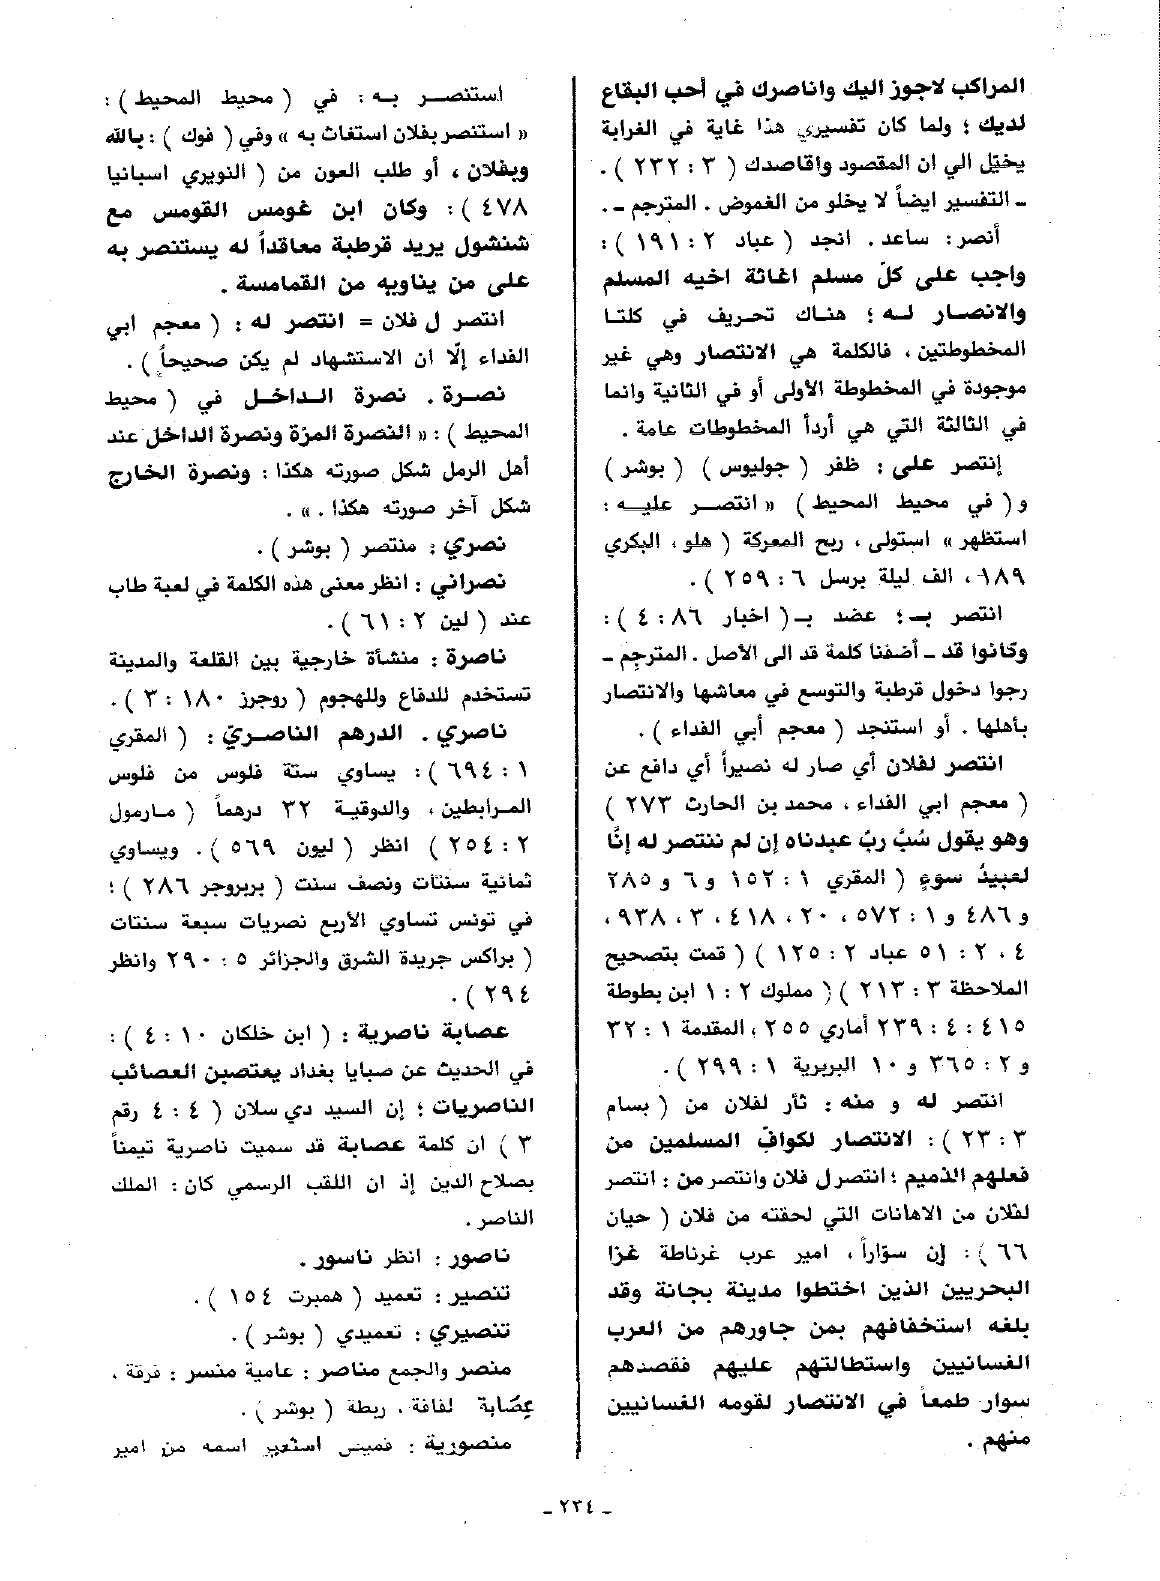 المراكب لاجوز اليك واناصرك في أحب البقاع
لديك ؛ ولما كان تفسيري هذا غاية في الغرابة
يخيّل الي ان المقصود واقاصدك ( ٣ : ٢٣٢ ) .
ـ التفسير ايضاً لا يخلو من الغموض . المترجم ـ .
أنصر : ساعد . انجد ( عباد ٢ : ١٩١ ) :
واجب على كلّ مسلم اغاثة اخيه المسلم
والانصار له ؛ هناك تحريف في كلتا
المخطوطتين ، فالكلمة هي الانتصار وهي غير
موجودة في المخطوطة الأولى أو في الثانية وانما
في الثالثة التي هي أردأ المخطوطات عامة .
إنتصر على : ظفر ( جوليوس ) ( بوشر )
و ( في محيط المحيط ) « انتصر عليه :
استظهر » استولى ، ربح المعركة ( هلو ، البكري
١٨٩ ، الف ليلة برسل ٦ : ٢٥٩ ) .
انتصر بـ ؛ عضد بـ ( اخبار ٨٦ : ٤ ) :
وكانوا قد ـ أضفنا كلمة قد الى الأصل . المترجم ـ
رجوا دخول قرطبة والتوسع في معاشها والانتصار
بأهلها . أو استنجد ( معجم أبي الفداء ) .
انتصر لفلان أي صار له نصيراً أي دافع عن
( معجم ابي الفداء ، محمد بن الحارث ٢٧٣ )
وهو يقول سُبَّ ربّ عبدناه إن لم ننتصر له إنّا
لعبيدُ سوءٍ ( المقري ١ : ١٥٢ و ٦ و ٢٨٥
و ٤٨٦ و ١ : ٥٧٢ ، ٢٠ ، ٤١٨ ، ٣ ، ٩٣٨ ،
٤ ، ٢ : ٥١ عباد ٢ : ١٢٥ ) ( قمت بتصحيح
الملاحظة ٣ : ٢١٣ ) ( مملوك ٢ : ١ ابن بطوطة
٤١٥ : ٤ : ٢٣٩ أماري ٢٥٥ ، المقدمة ١ : ٣٢
و ٢ : ٣٦٥ و ١٠ البربرية ١ : ٢٩٩ ) .
انتصر له و منه : ثأر لفلان من ( بسام
٣ : ٢٣ ) : الانتصار لكوافّ المسلمين من
فعلهم الذميم ؛ انتصر ل فلان وانتصر من : انتصر
لفلان من الاهانات التي لحقته من فلان ( حيان
٦٦ ) : إن سوّاراً ، امير عرب غرناطة غزا
البحريين الذين اختطوا مدينة بجانة وقد
بلغه استخفافهم بمن جاورهم من العرب
الغسانيين واستطالتهم عليهم فقصدهم
سوار طمعاً في الانتصار لقومه الغسانيين
منهم .
استنصر به : في ( محيط المحيط ) :
« استنصر بفلان استغاث به » وفي ( فوك ) : بالله
وبفلان ، أو طلب العون من ( النويري اسبانيا
٤٧٨ ) : وكان ابن غومس القومس مع
شنشول يريد قرطبة معاقداً له يستنصر به
على من يناويه من القمامسة .
انتصر ل فلان = انتصر له : ( معجم ابي
الفداء إلّا ان الاستشهاد لم يكن صحيحاً ) .
نصرة . نصرة الداخل في ( محيط
المحيط ) : « النصرة المرّة ونصرة الداخل عند
أهل الرمل شكل صورته هكذا : ونصرة الخارج
شكل آخر صورته هكذا . » .
نصري : منتصر ( بوشر ) .
نصراني : انظر معنى هذه الكلمة في لعبة طاب
عند ( لين ٢ : ٦١ ) .
ناصرة : منشأة خارجية بين القلعة والمدينة
تستخدم للدفاع وللهجوم ( روجرز ١٨٠ : ٣ ) .
ناصري . الدرهم الناصريّ : ( المقري
١ : ٦٩٤ ) : يساوي ستة فلوس من فلوس
المرابطين ، والدوقية ٣٢ درهماً ( مارمول
٢ : ٢٥٤ ) انظر ( ليون ٥٦٩ ) . ويساوي
ثمانية سنتات ونصف سنت ( بربروجر ٢٨٦ ) ؛
في تونس تساوي الأربع نصريات سبعة سنتات
( براكس جريدة الشرق والجزائر ٥ : ٢٩٠ وانظر
٢٩٤ ) .
عصابة ناصرية : ( ابن خلكان ١٠ : ٤ ) :
في الحديث عن صبايا بغداد يعتصبن العصائب
الناصريات ؛ إن السيد دي سلان ( ٤ : ٤ رقم
٣ ) ان كلمة عصابة قد سميت ناصرية تيمناً
بصلاح الدين إذ ان اللقب الرسمي كان : الملك
الناصر .
ناصور : انظر ناسور .
تنصير : تعميد ( همبرت ١٥٤ ) .
تنصيري : تعميدي ( بوشر ) .
منصر والجمع مناصر : عامية منسر : فرقة ،
عِصَابة لفافة ، ربطة ( بوشر ) .
منصورية : قميص استعير اسمه من امير
ـ ٢٣٤ ـ